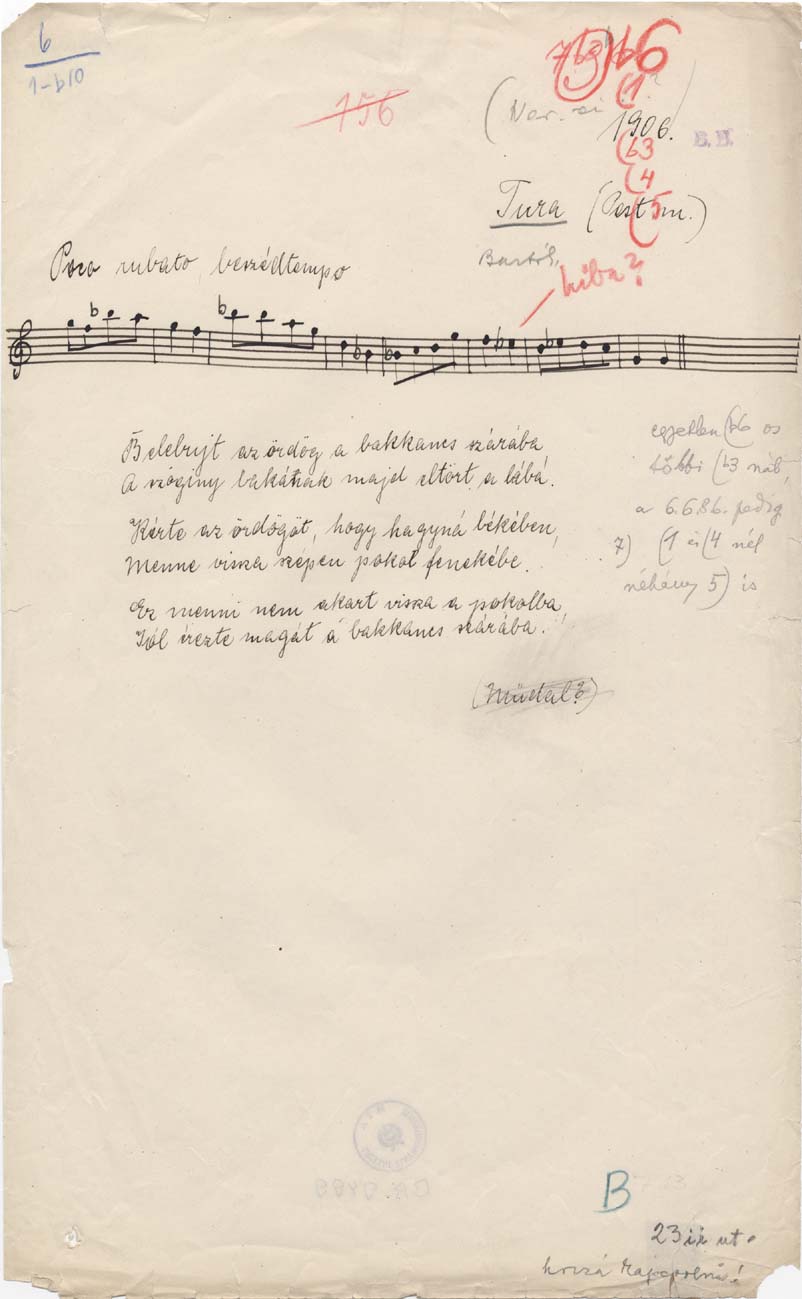 6
1-b10
156
b6
(1
1906.
B. B.
(b3
(4
Tura (Pest m.)
(5
Bartók,
Poco rubato, beszédtempo
hiba?
Belebujt az ördög a bakkancs szárába,
A szöginy bakának majd eltört a lábá.
Kérte az ördögöt, hogy hagyná békében,
Menne vissza szépen pokol fenekébe.
Ez menni nem akart vissza a pokolba,
Jól érezte magát a bakkancs szárába.
egyetlen (b6 os
többi (b3 nál,
a 6.6.8.6. pedig
7) (1 és (4 nél
néhány 5) is
(Müdal?)
B
23ik ut.
hozzá